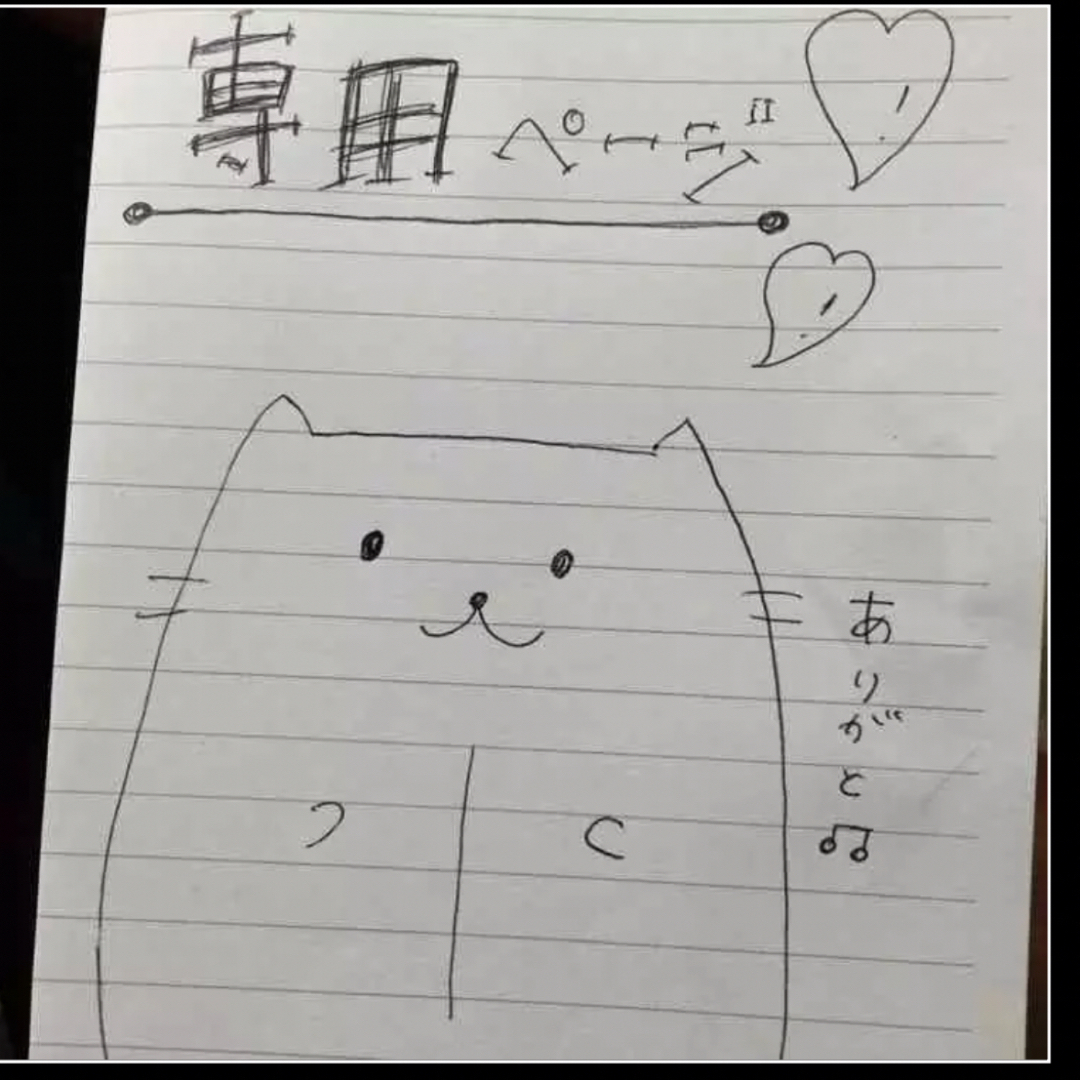 専用ページ
ありがと♫